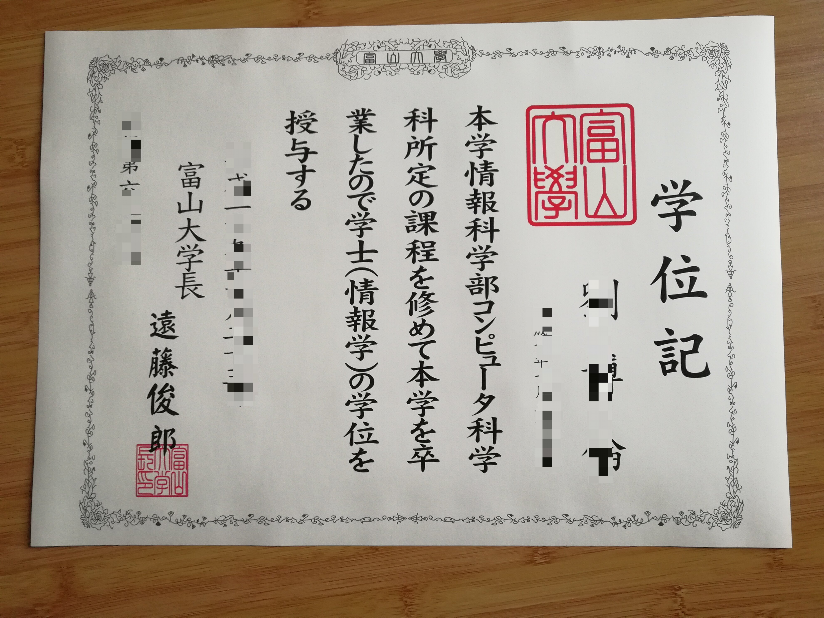 富山大學
学位記
富山大學
本学情報科学部コンピュータ科学
科所定の課程を修めて本学を卒
業したので学士(情報学)の学位を
授与する
富山大学長
遠藤俊郎
第六
富山大学長印